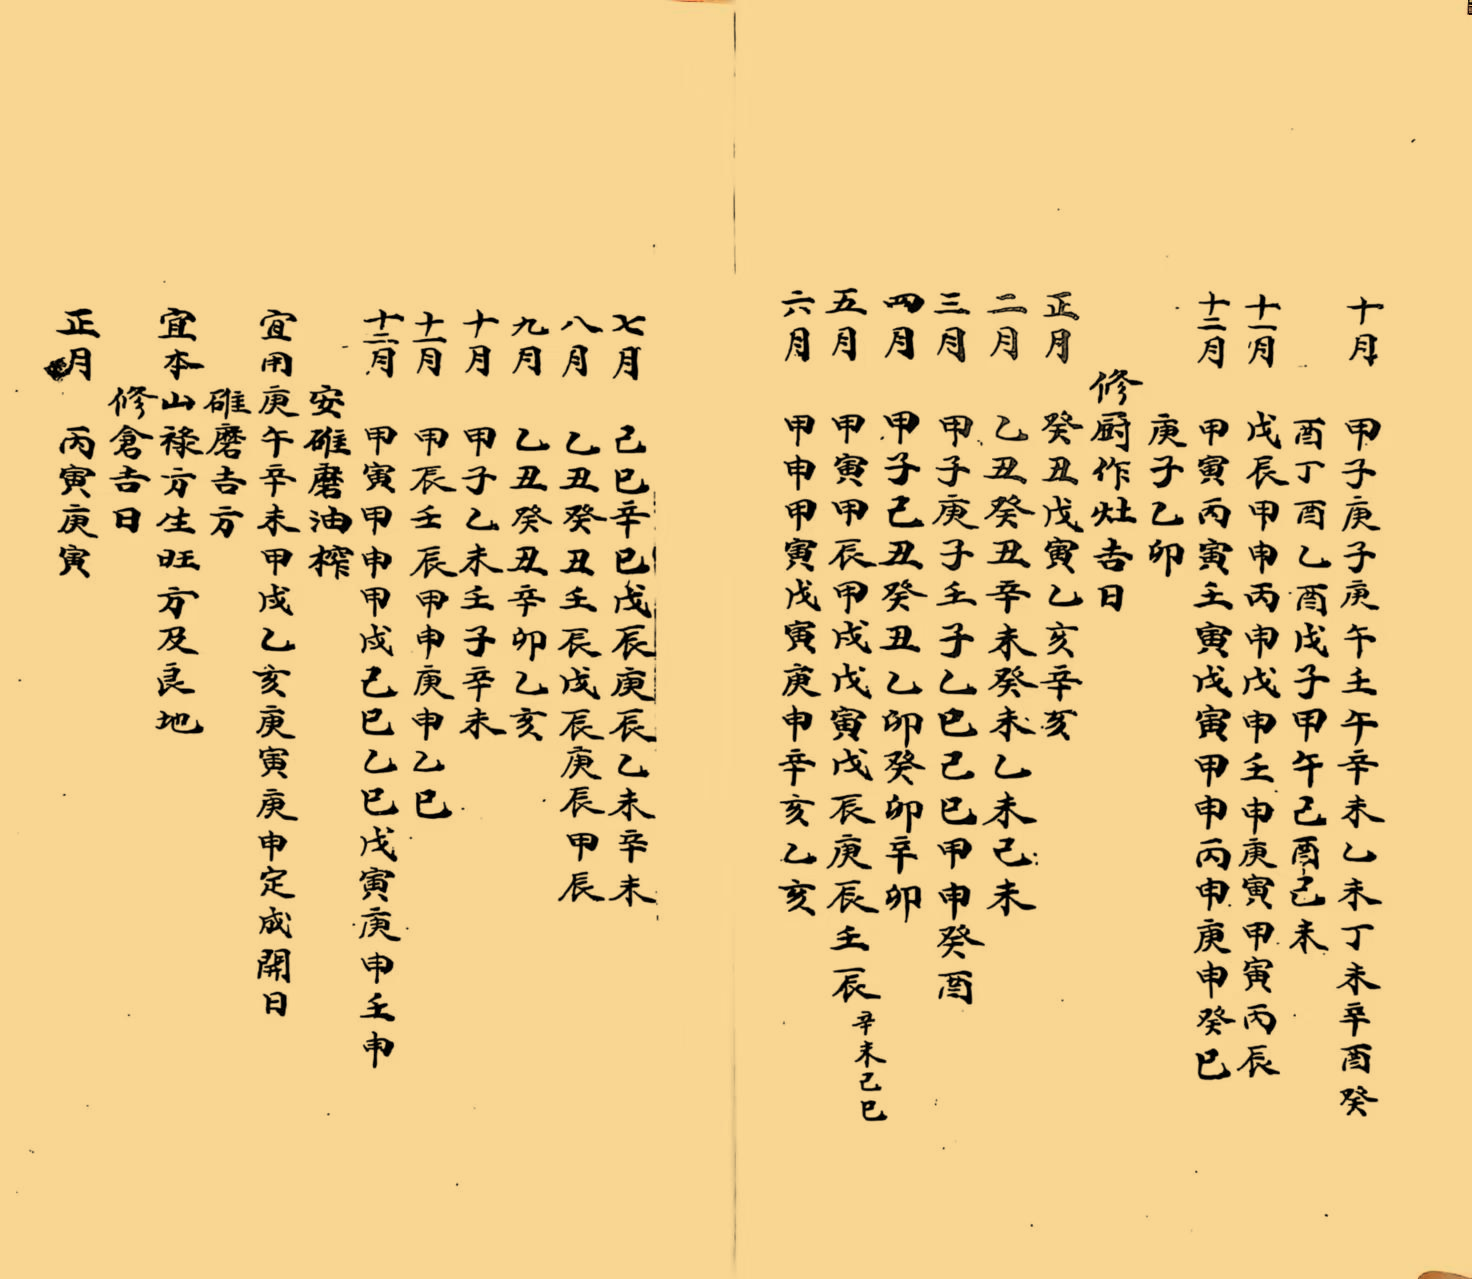 十月 甲子庚子庚午壬午辛未乙未丁未辛酉癸
酉丁酉乙酉戊子甲午己酉己未
十一月 戊辰甲申丙申戊申壬申庚寅甲寅丙辰
十二月 甲寅丙寅壬寅戊寅甲申丙申庚申癸巳
庚子乙卯
修厨作灶吉日
正月 癸丑戊寅乙亥辛亥
二月 乙丑癸丑辛未癸未乙未己未
三月 甲子庚子壬子乙巳己巳甲申癸酉
四月 甲子己丑癸丑乙卯癸卯辛卯
五月 甲寅甲辰甲戌戊寅戊辰庚辰壬辰辛未己巳
六月 甲申甲寅戊寅庚申辛亥乙亥
七月 己巳辛巳戊辰庚辰乙未辛未
八月 乙丑癸丑壬辰戊辰庚辰甲辰
九月 乙丑癸丑辛卯乙亥
十月 甲子乙未壬子辛未
十一月 甲辰壬辰甲申庚申乙巳
十二月 甲寅甲申甲戌己巳乙巳戊寅庚申壬申
安碓磨油榨
宜用庚午辛未甲戌乙亥庚寅庚申定成開日
碓磨吉方
宜本山祿方生旺方及良地
修倉吉日
正月 丙寅庚寅